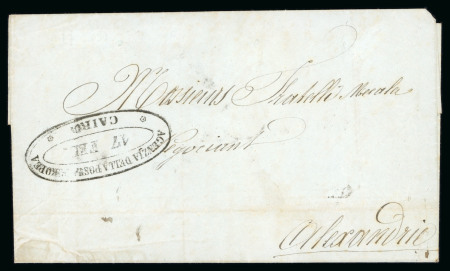 Messieurs Fratelli
Negociant
Alexandrie
AGENZIA DELLA POSTA EUROPEA
17
CAIRO